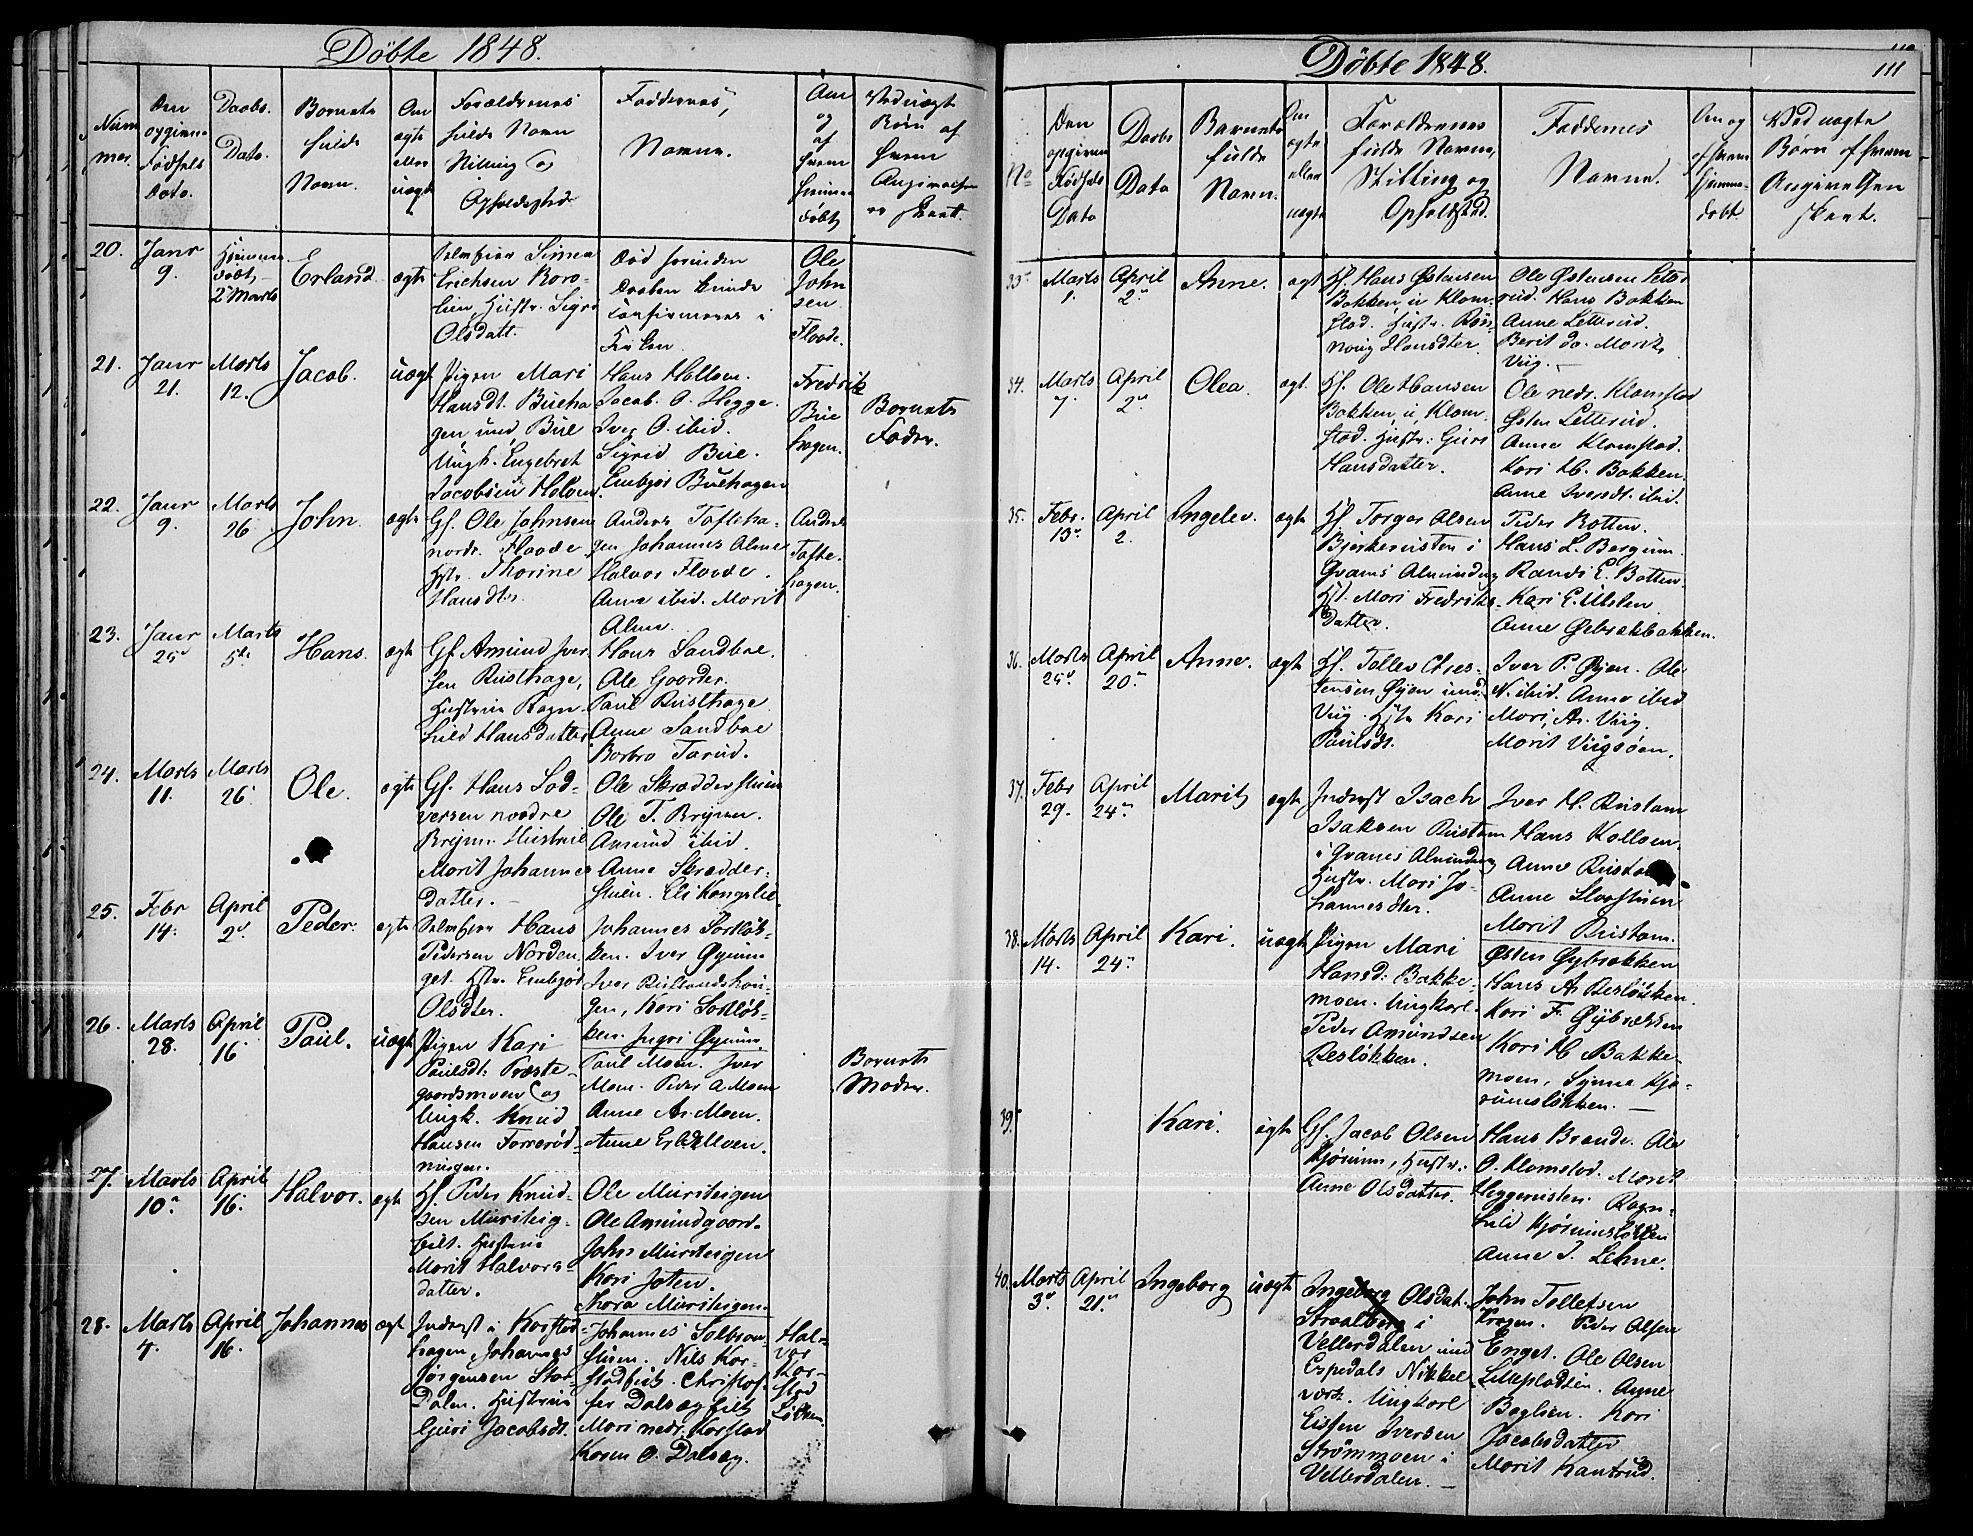 Döbte 1848.
Num
mer.
Den
opgivne
Födsels
Dato.
Daabs
Dato.
Barnets
fulde
Navn.
Om
ægte
eller
uægte
Forældrenes
fulde Navn
Stilling og
Opholdssted
Faddernes
Navne.
Om
og
af
hvem
hjemme
döbt
Ved uægte
Børn af
hvem
Angivelsen
er skeet.
20. Janr 9. Hjemme
döbt,
2 Marts
Erland. ægte
Erichsen Boro-
lien, Hustr. Sigri
Olsdatt.
Ole
John
sen
Flaade.
21. Janr 21. Marts 12. Jacob. uægt
Pigen Mari
Hansd. Bueha
gen und. Bue
Ungk. Engebret
Jacobsen Holoen.
Hans Holloen.
Jacob. O. Hegge.
Iver O. ibid.
Sigrid Bue.
Embjør Buehagen
Fredrik
Bue
hagen.
Barnets
Fader.
22. Janr 9. Marts 26. John. ægte
Gf. Ole Johnsen
nordr. Flaade
Hstr. Thorine
Hansdtr.
Anders Tofteha-
gen Johannes Alme
Halvor Flaade.
Anne ibid. Marit
Alme.
Anders
Tofte-
hagen.
23. Janr 25 Marts 5te Hans. ægte
Gf. Amund Iver-
sen Rusthage,
Hustrue Ragn-
hild Hansdatter
Hans Sandboe.
Ole Gaarder.
Paul Rusthage
Anne Sandboe
Barbro Tarud.
24. Marts 11. Marts 26. Ole. ægte
Gf. Hans Lod-
versen nordre
Brejum. Hustrue
Marit Johannes
datter.
Ole Skrædderstuen
Ole T. Brejum.
Amund ibid.
Anne Skrædder-
stuen. Eli Kongslie.
25. Febr 14. April 2 Peder. ægte
Hans
Pedersen Norden
get. Hstr. Embjør
Olsdter.
Johannes Sortløk-
ken. Iver
Iver Ruslandshau-
gen, Kari Sortløk-
ken
26. Marts 28. April 16. Paul. uægt
Pigen Kari
Paulsdt. Præste-
gaardsmoen og
Ungk. Knud
Hansen
ningen.
Paul Moen. Iver
Moen. Peder A Moen
Anne A. Moen.
Anne
Barnets
Moder.
27. Marts 10. April 16. Halvor. ægt
Hf. Peder Knud-
sen Mursteig-
eilt. Hustrue
Marit Halvors-
datter.
Ole Mursteigen
Ole Amundgaard.
John Mursteigen
Kari Joten.
Thora Mursteigen.
28. Marts 4. April 16. Johannes ægt
Inderst i Korstad
hagen, Johannes
Jørgensen Stor-
Dalen. Hustrue
Guri Jacobsdt.
Johannes Solbraa-
stuen. Nils Kor-
stadeilt. Christof-
fer Dalsægeilt
Mari nedr. Korstad
Karen O. Dalsæg.
Hal-
vor
Kor-
stad
Løkken.
Döbte 1848.
111
No
Den
opgivne
Födsels
Dato
Daabs
Dato
Barnets
fulde
Navn.
Om
ægte
eller
uægte
Forældrenes
fulde Navne,
Stilling og
Opholdsted.
Faddernes
Navne.
Om og
af hvem
hjemme-
døbt
Ved uægte
Børn af hvem
Angivelsen
skeet.
Marts 1. April 2 Anne. ægt
Hf. Hans Østensen
Bakken, u. Klom-
stad. Hustr. Røn-
noug Hansdter.
Ole Østensen
Hans Bakken
Anne Letterud.
Berit do. Marit
Viig.
34. Marts 7. April 2 Olea. ægt.
Hf. Ole Hansen
Bakken, u. Klom-
stad. Hustr: Guri
Hansdatter.
Ole nedr. Klomstad
Østen Letterud.
Anne Klomstad.
Kari H. Bakken.
Anne Iversdt. ibid.
35. Febr. 13 April 2. Ingelev. ægte
Hf. Torger Olsen
Bjerkerusten i
Qvams Alminding
Hst. Mari Fredriks-
datter.
Peder Botten.
Hans L. Bergum.
Randi E. Botten.
Kari E. Ulslen.
Anne Ørbækbakken.
36. Marts 25 April 20 Anne. ægte
Hf. Tollev Chres-
tensen Øyen und.
Viig. Hstr. Kari
Paulsdt.
Iver P. Øyen. Ole
N. ibid. Anne ibid
Mari A. Viig.
Marit Viigsøen.
37. Febr 29. April 24 Marit ægte
Inderst Isach
Isaksen Rustam
i Qvams Alminding
Hustr. Mari Jo-
hannesdter.
Iver H. Rustam
Hans Kolloen.
Anne Rustam
Anne
Marit Rustam.
38. Marts 14. April 24 Kari. uægt
Pigen Mari
Hansd: Bakke-
moen. Ungkarl.
Peder Amundsen
Resløkken.
Østen
Hans A. Resløkken.
Kari F.
Kari H. Bakke-
moen, Synne Kjø-
rumsløkken.
39. Kari. ægte
Gf. Jacob Olsen
Kjørum, Hustr.
Anne Olsdatter.
Hans Brande. Ole
O. Klomstad. Marit
Heggerusten. Ragn-
hild Kjørumsløkken
Anne I. Lehne.
40. Marts 3 April 21 Ingeborg uægt
Ingeborg Olsdat.
Straalberg i
Vellerdalen und.
Espedals Nikkel
værk. Ungkarl
Iversen
Strømmoen i
Vellerdalen.
John Tollefsen
Kragen. Peder Olsen
Enget. Ole Olsen
Lillepladsen. Anne
Baglien. Kari
Jacobsdatter
Marit Kantrud.